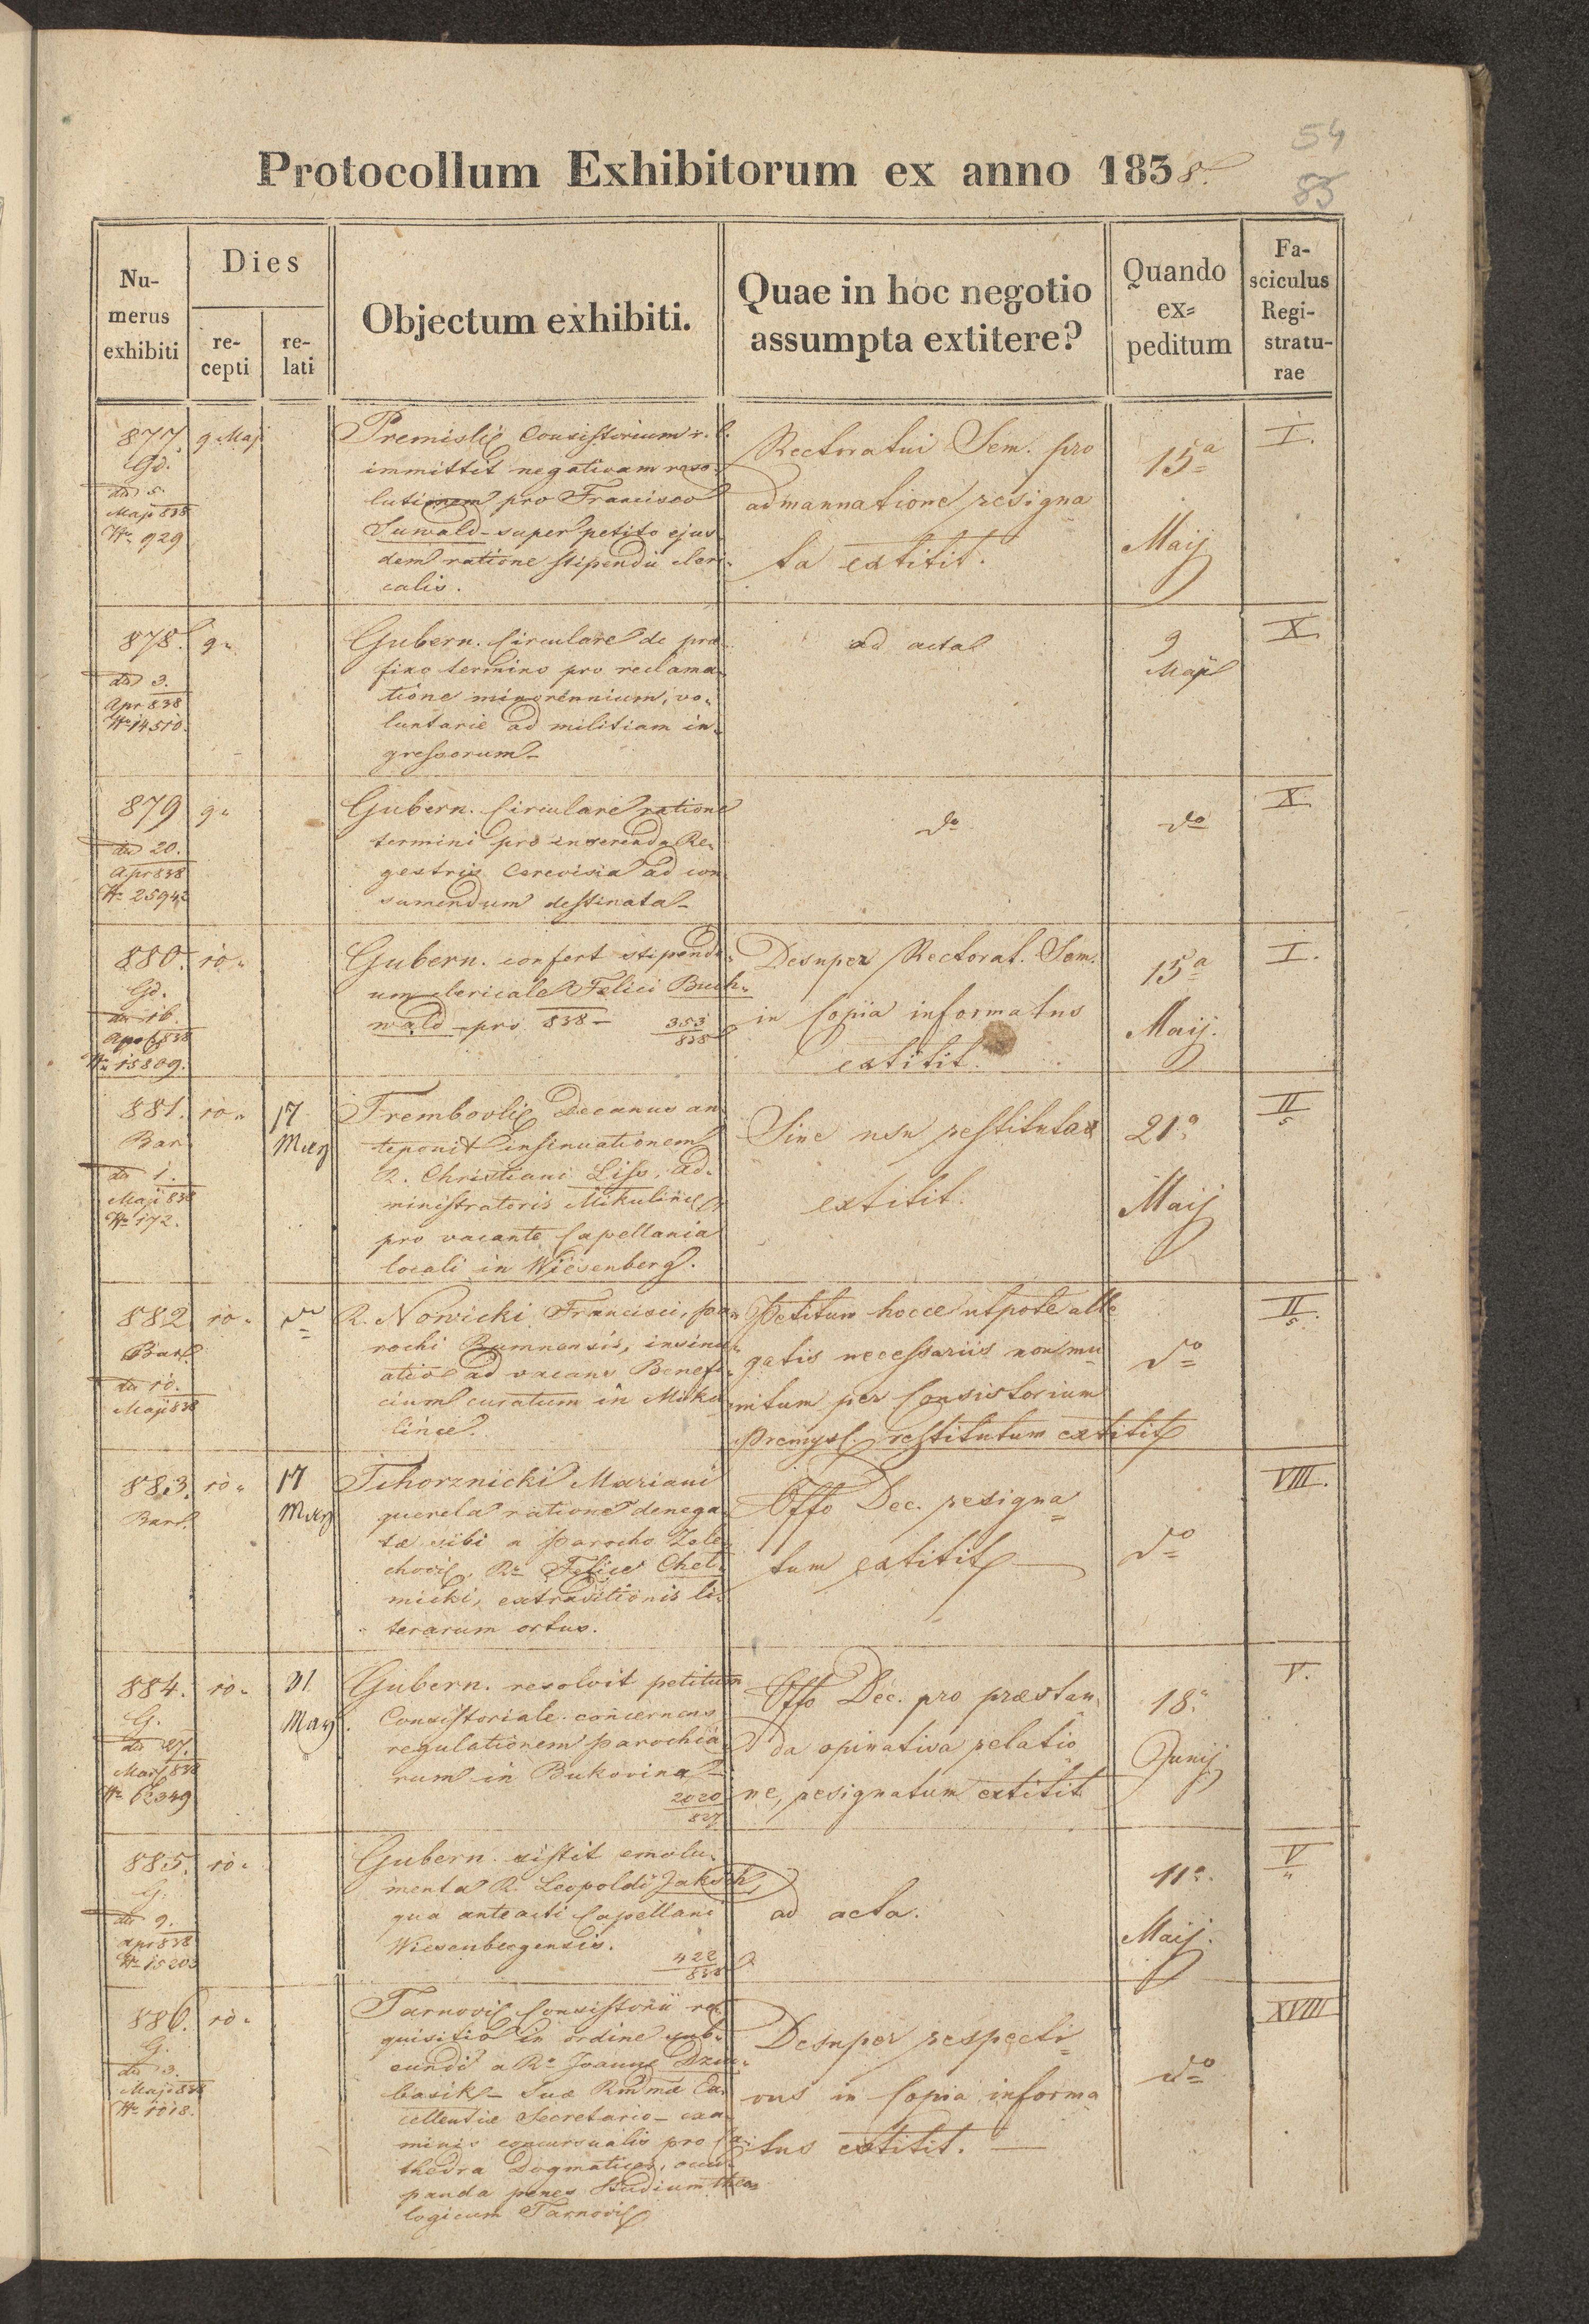 54
Protocollum Exhibitorum ex anno 1838.
83
Numerus exhibiti
Dies
recepti
relati
Objectum exhibiti.
Quae in hoc negotio
assumpta extitere?
Quando
ex=
peditum
Fa-
sciculus
Regi-
stratu-
rae
877. 9. Maji
Gd.
dto 5.
Maji 838
No 929
Premislie Consistorium r. l.
immittit negativam reso-
lutionem pro Francisco
Suwald - super petito ejus
dem ratione stipendii cleri-
calis.
Rectoratui Sem. pro
admannatione resigna
ta extitit.
15a
Maij
I.
878. 9.
dto 3.
Apr 838
No 14510.
Gubern. Circulare de prae-
fixo termino pro reclama-
tione minorennium, vo-
luntarie ad militiam in-
gressorum -
ad acta
9
Maji
X.
879 9.
dto 20.
Apr 838
No 25942
Gubern. Circulare ratione
termini pro inserenda Re-
gestris Cerevisia ad con-
sumendum destinata -
do
do
X.
880. 10.
Gd.
dto 16.
Apr 838
No 15809.
Gubern. confert stipendi-
um clericale Felici Buch-
wald - pro 838 -
353
838
Desuper Rectorat. Sem.
in Copia informatus
extitit.
15a
Maij.
I.
881. 10. 17
Maij
Bar
dto 1.
Maji 838
No 172.
Trembovlie Decanus an
teponit insinuationem
R. Christiani Liss, ad-
ministratoris Mikulince
pro vacante Capellania
locali in Wiesenberg.
Sine usu restituta
extitit.
21a
Maij
II
5
882 10. do
Bar.
dto 10.
Maji 838
R. Nowicki Francisci, pa-
rochi Rumnensis, insinu-
atio ad vacans Benefi-
cium curatum in Miku
lince.
Petitum hocce utpote alle
gatis necessariis non mu
nitum per Consistorium
Premysl. restitutum extitit
do
II.
5
883. 10. 17
Maij
Bar.
Tchorznicki Mariani
querela ratione denega
tae sibi a parocho Zele
chovie, Ro Felice Cheł-
micki, extraditionis li-
terarum ortus.
Offo Dec. resigna
tum extitit —
do
VIII.
884. 10. 31
May.
G.
dto 27.
Mart 838
No 62349
Gubern. resolvit petitum
Consistoriale concernens
regulationem parochia
rum in Bukovina -
2020
827
Offo Dec. pro praestan-
da opinativa relatio
ne, resignatum extitit
18a
Junij
V.
885. 10.
G.
dto 9.
Apr 838
No 15203
Gubern. sistit emolu-
menta R. Leopoldi Jaksch
qua anteacti Capellani
Wiesenbergensis.
422
838
ad acta.
11a.
Maij.
V
886. 10.
G.
dto 3.
Maji 838
No 1018.
Tarnovie Consistorii re-
quisitio in ordine sub-
eundi a Ro Joanne
- Suae Rmdmae Ex-
cellentiae Secretario - exa-
minis concursualis pro Ca-
thedra Dogmatices, occu-
panda penes Studium theo-
logicum Tarnovie
Desuper respecti
vus in Copia informa
tus extitit. —
do
XVIII